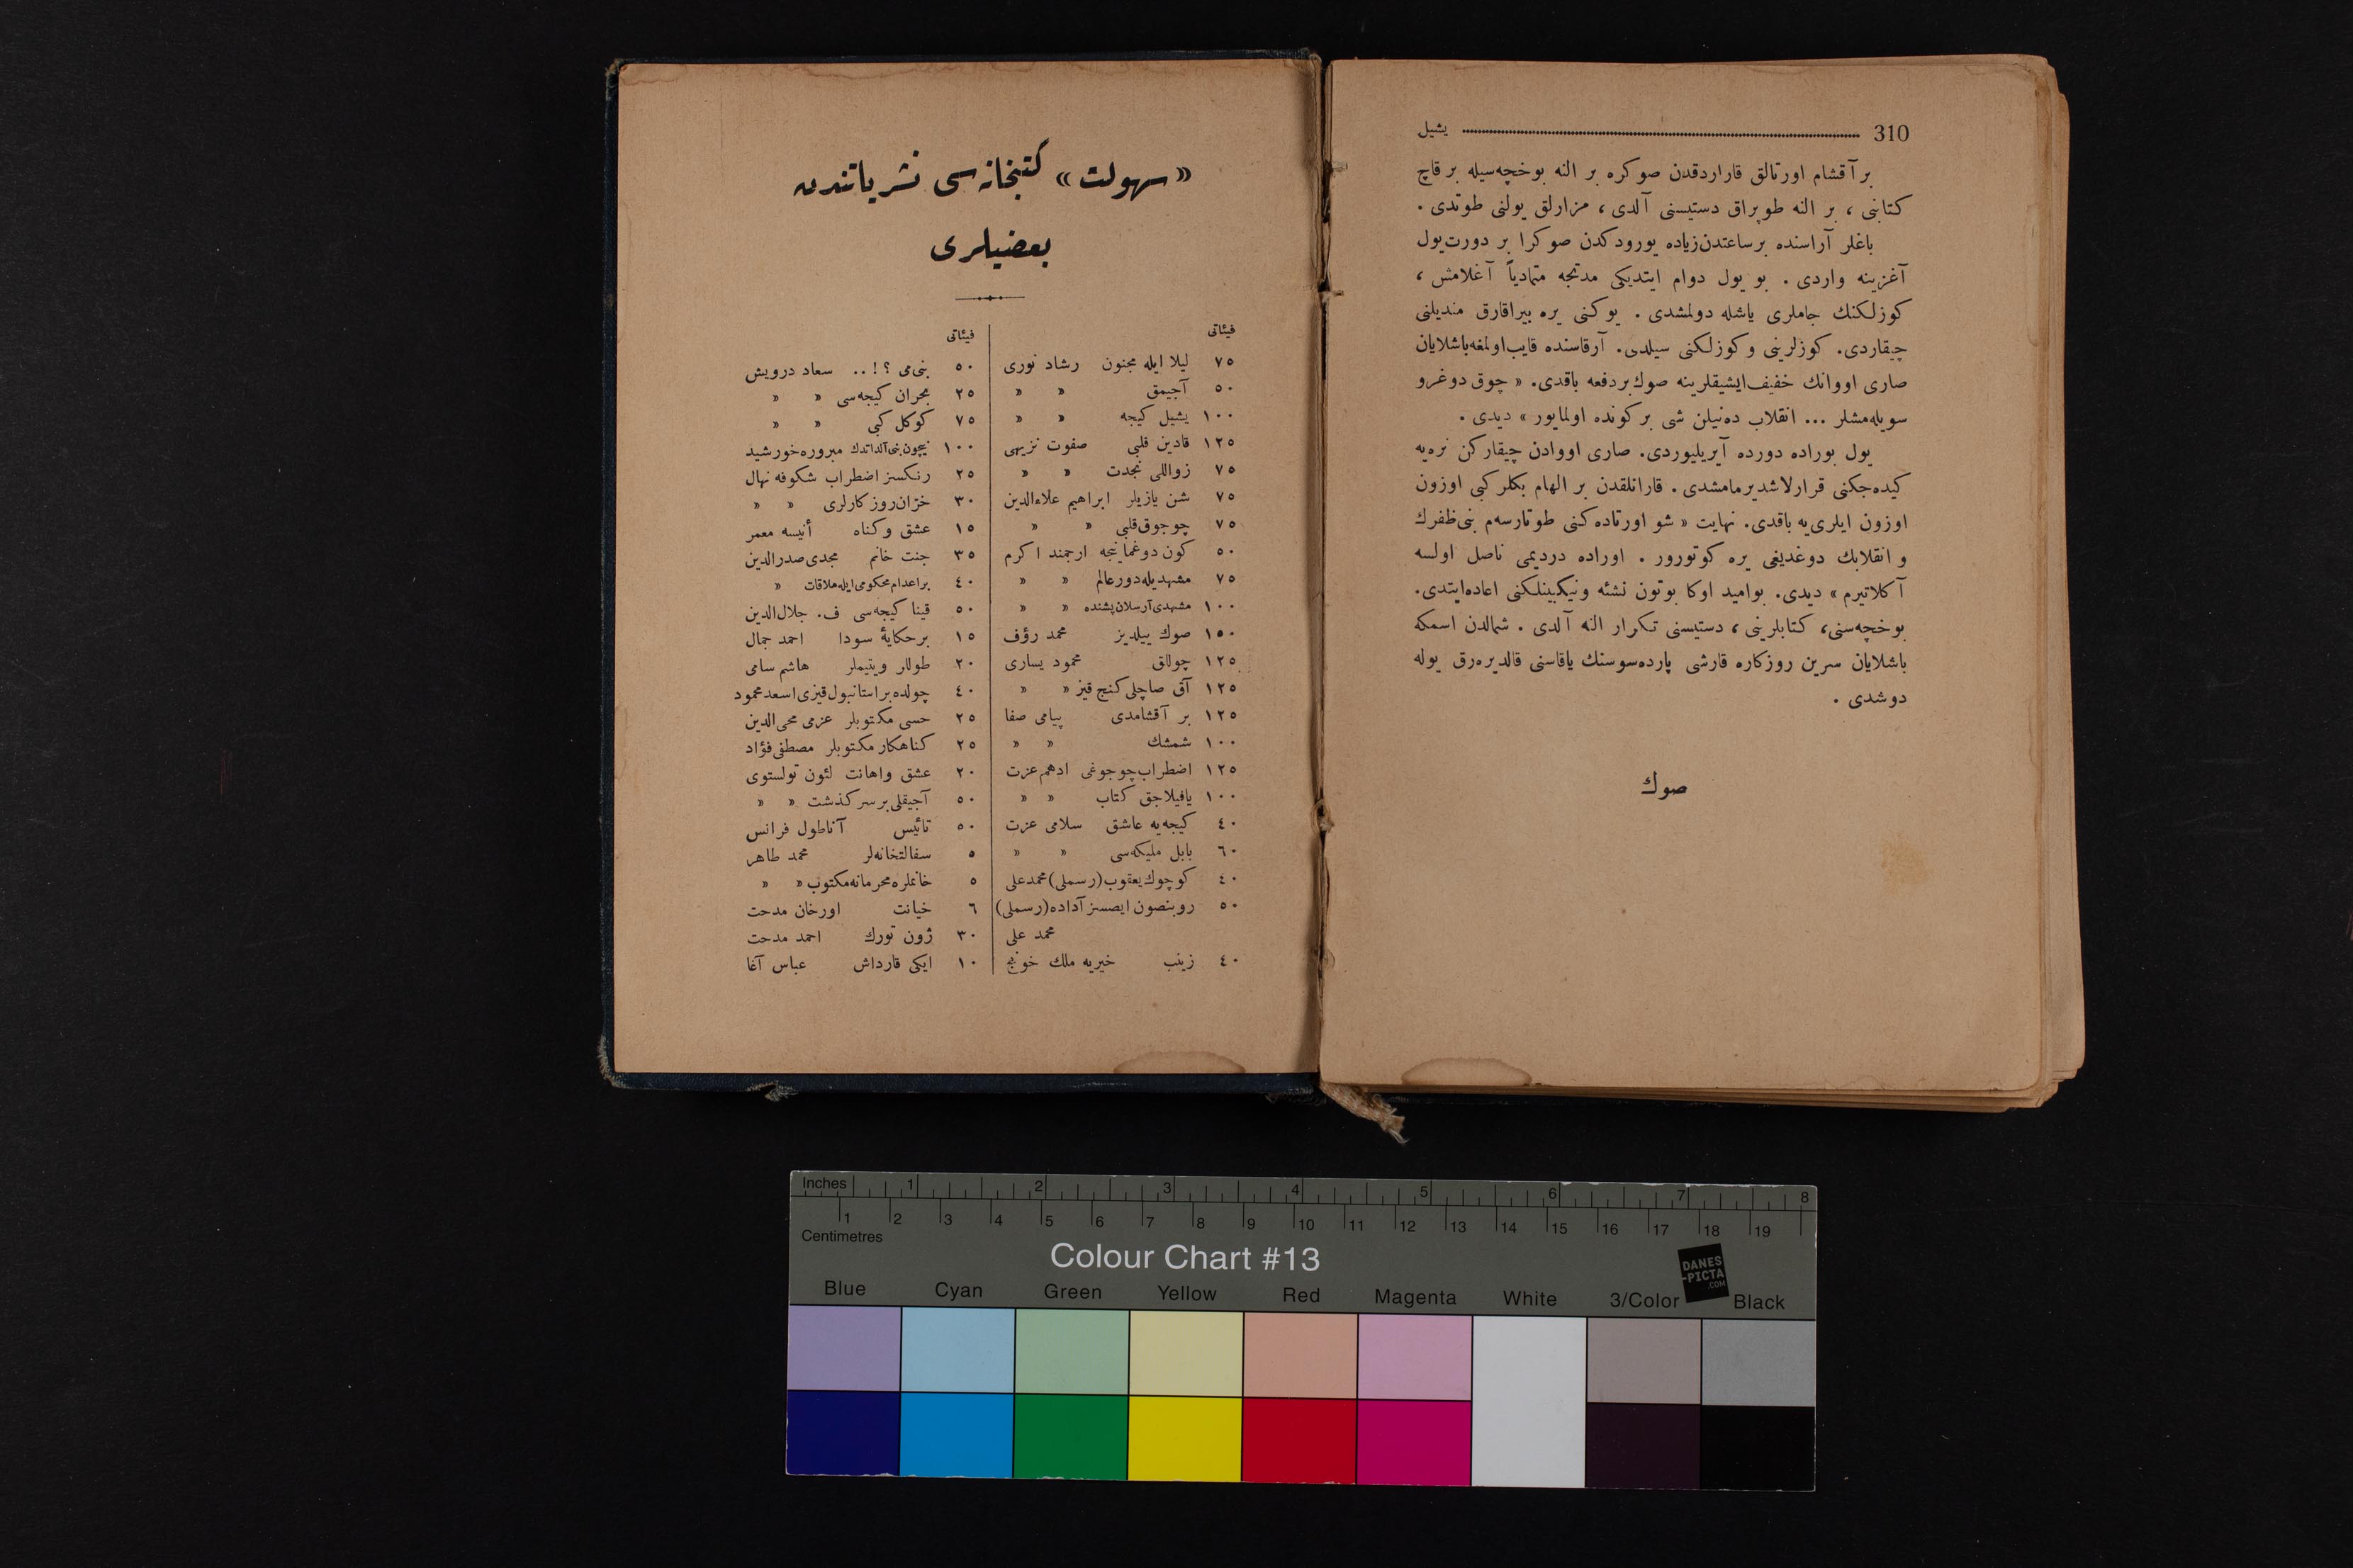 310 يشيل
بر آقشام اورتالق قاراردقدن صوكره بر النه بوخچه‌سيله بر قاچ
كتابنى ، بر النه طوپراق دستيسنى آلدى ، مزارلق يولنى طوتدى .
باغلر آراسنده برساعتدن‌زياده يورودكدن صوكرا بر دورت‌يول
آغزينه واردى . بو يول دوام ايتديكى مدتجه متمادياً آغلامش ،
كوزلكنك جاملرى ياشله دولمشدى . يوكنى يره بيراقارق منديلنى
چيقاردى. كوزلرينى و كوزلكنى سيلدى. آرقاسنده قايب‌اولمغه‌باشلايان
صارى اووانك خفيف‌ايشيقلرينه صوك‌بردفعه باقدى. « چوق دوغرو
سويله‌مشلر ... انقلاب ده‌نيلن شى بر كونده اولمايور » ديدى .
يول بوراده دورده آيريليوردى. صارى اووادن چيقاركن نره‌يه
كيده‌جكنى قرارلاشديرمامشدى . قارانلقدن بر الهام بكلر كبى اوزون
اوزون ايلرى‌يه باقدى. نهايت « شو اورتاده‌كنى طوتارسه‌م بنى‌ظفرك
و انقلابك دوغديغى يره كوتورور . اوراده درديمى ناصل اولسه
آكلاتيرم » ديدى. بواميد اوكا بوتون نشئه ونيكبينلكنى اعاده‌ايتدى.
بوخچه‌سنى، كتابلرينى ، دستيسنى تكرار النه آلدى . شمالدن اسمكه
باشلايان سرين روزكاره قارشى پارده‌سوسنك ياقاسنى قالديره‌رق يوله
دوشدى .
صوك
«سهولت» كتبخانه‌سى نشرياتندن
بعضيلرى
فيئاتى
٧٥ ليلا ايله مجنون رشاد نورى
٥٠ آجيمق » »
١٠٠ يشيل كيجه » »
١٢٥ قادين قلبى صفوت نزيهى
٧٥ زواللى نجدت » »
٧٥ شن يازيلر ابراهيم علاءالدين
٧٥ چوجوق‌قلبى » »
٥٠ كون دوغماينجه ارجمند اكرم
٧٥ مشهديله‌دورعالم » »
١٠٠ مشهدى‌آرسلان‌پشنده » »
١٥٠ صوك ييلديز محمد رؤف
١٢٥ چوللاق محمود يسارى
١٢٥ آق صاچلى‌كنج قيز » »
١٢٥ بر آقشامدى پيامى صفا
١٠٠ شمشك » »
١٢٥ اضطراب‌چوجوغى ادهم‌عزت
١٠٠ ياقيلاجق كتاب » »
٤٠ كيجه‌يه عاشق سلامى عزت
٦٠ بابل مليكه‌سى » »
٤٠ كوچوك‌يعقوب(رسملى)محمدعلى
٥٠ روبنصون ايصسز آداده(رسملى)
محمد على
٤٠ زينب خيريه ملك خونج
فيئاتى
٥٠ بنى‌مى ؟ ! .. سعاد درويش
٢٥ بحران كيجه‌سى » »
٧٥ كوكل كبى » »
١٠٠ نيچون‌بنى‌آلداتدك مبروره‌خورشيد
٢٥ رنكسز اضطراب شكوفه نهال
٣٠ خزان‌روزكارلرى » »
١٥ عشق و كناه أنيسه معمر
٣٥ جنت خانم مجدى‌صدرالدين
٤٠ براعدام‌محكومى‌ايله‌ملاقات »
٥٠ قينا كيجه‌سى ف. جلال‌الدين
١٥ برحكايهٔ سودا احمد جمال
٢٠ طوللر ويتيملر هاشم سامى
٤٠ چولده‌براستانبول‌قيزى‌اسعدمحمود
٢٥ حسى مكتوبلر عزمى محى‌الدين
٢٥ كناهكار مكتوبلر مصطفى‌فؤاد
٢٠ عشق واهانت لئون تولستوى
٥٠ آجيقلى‌برسركذشت » »
٥٠ تائيس آناطول فرانس
٥ سفالتخانه‌لر محمد طاهر
٥ خانملره‌محرمانه‌مكتوب » »
٦ خيانت اورخان مدحت
٣٠ ژون تورك احمد مدحت
١٠ ايكى قارداش عباس آغا
Inches 1 2 3 4 5 6 7 8
1 2 3 4 5 6 7 8 9 10 11 12 13 14 15 16 17 18 19
Centimetres
Colour Chart #13
DANES
-PICTA
.COM
Blue Cyan Green Yellow Red Magenta White 3/Color Black